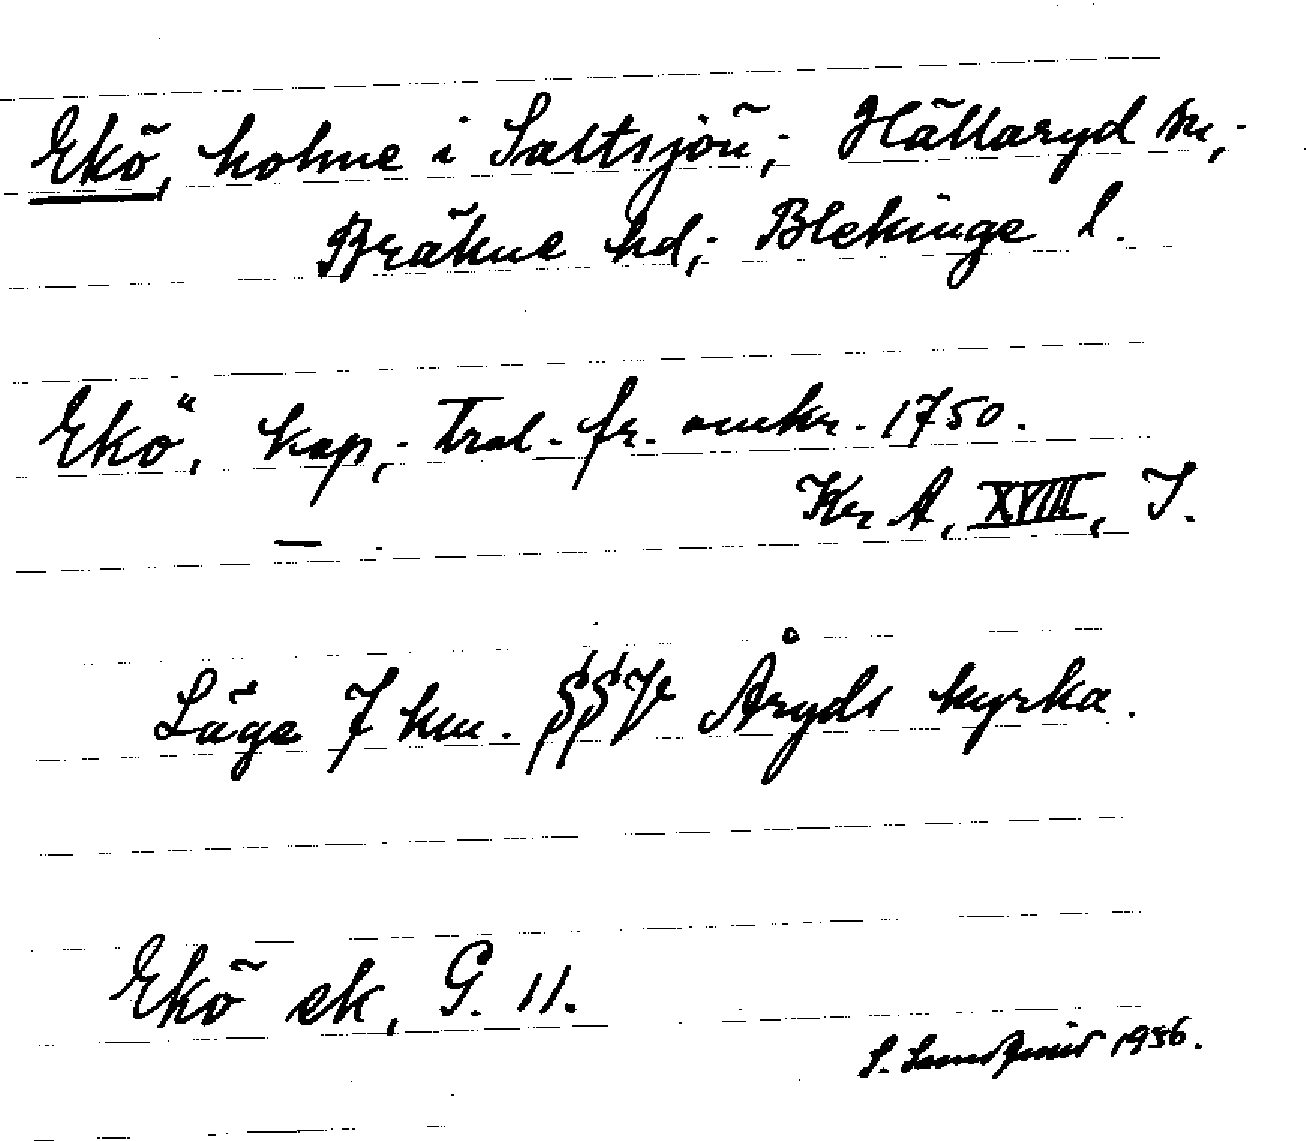 Ekö, holme i Saltsjön; Hällaryd sn;
Bräkne hd; Blekinge l.
Ekö, kap; Trol. fr. omkr. 1750.
Kr A, XVIII, I.
Läge 7 km. SSV Åryds kyrka.
Ekö ek, G. 11.
S. 1936.